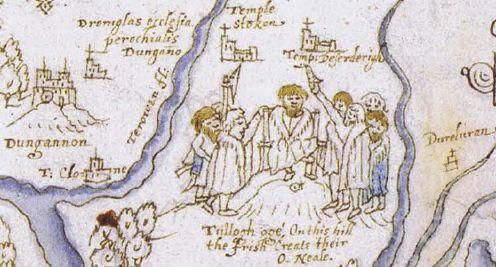 Dremglas ecclesia
perochialis
Dungano
Temple
stoken
Temp: Deserderigh
Dungannon
Dureluran
Tullogh oge. On this hill
the Irish Creats their
O-Neale.